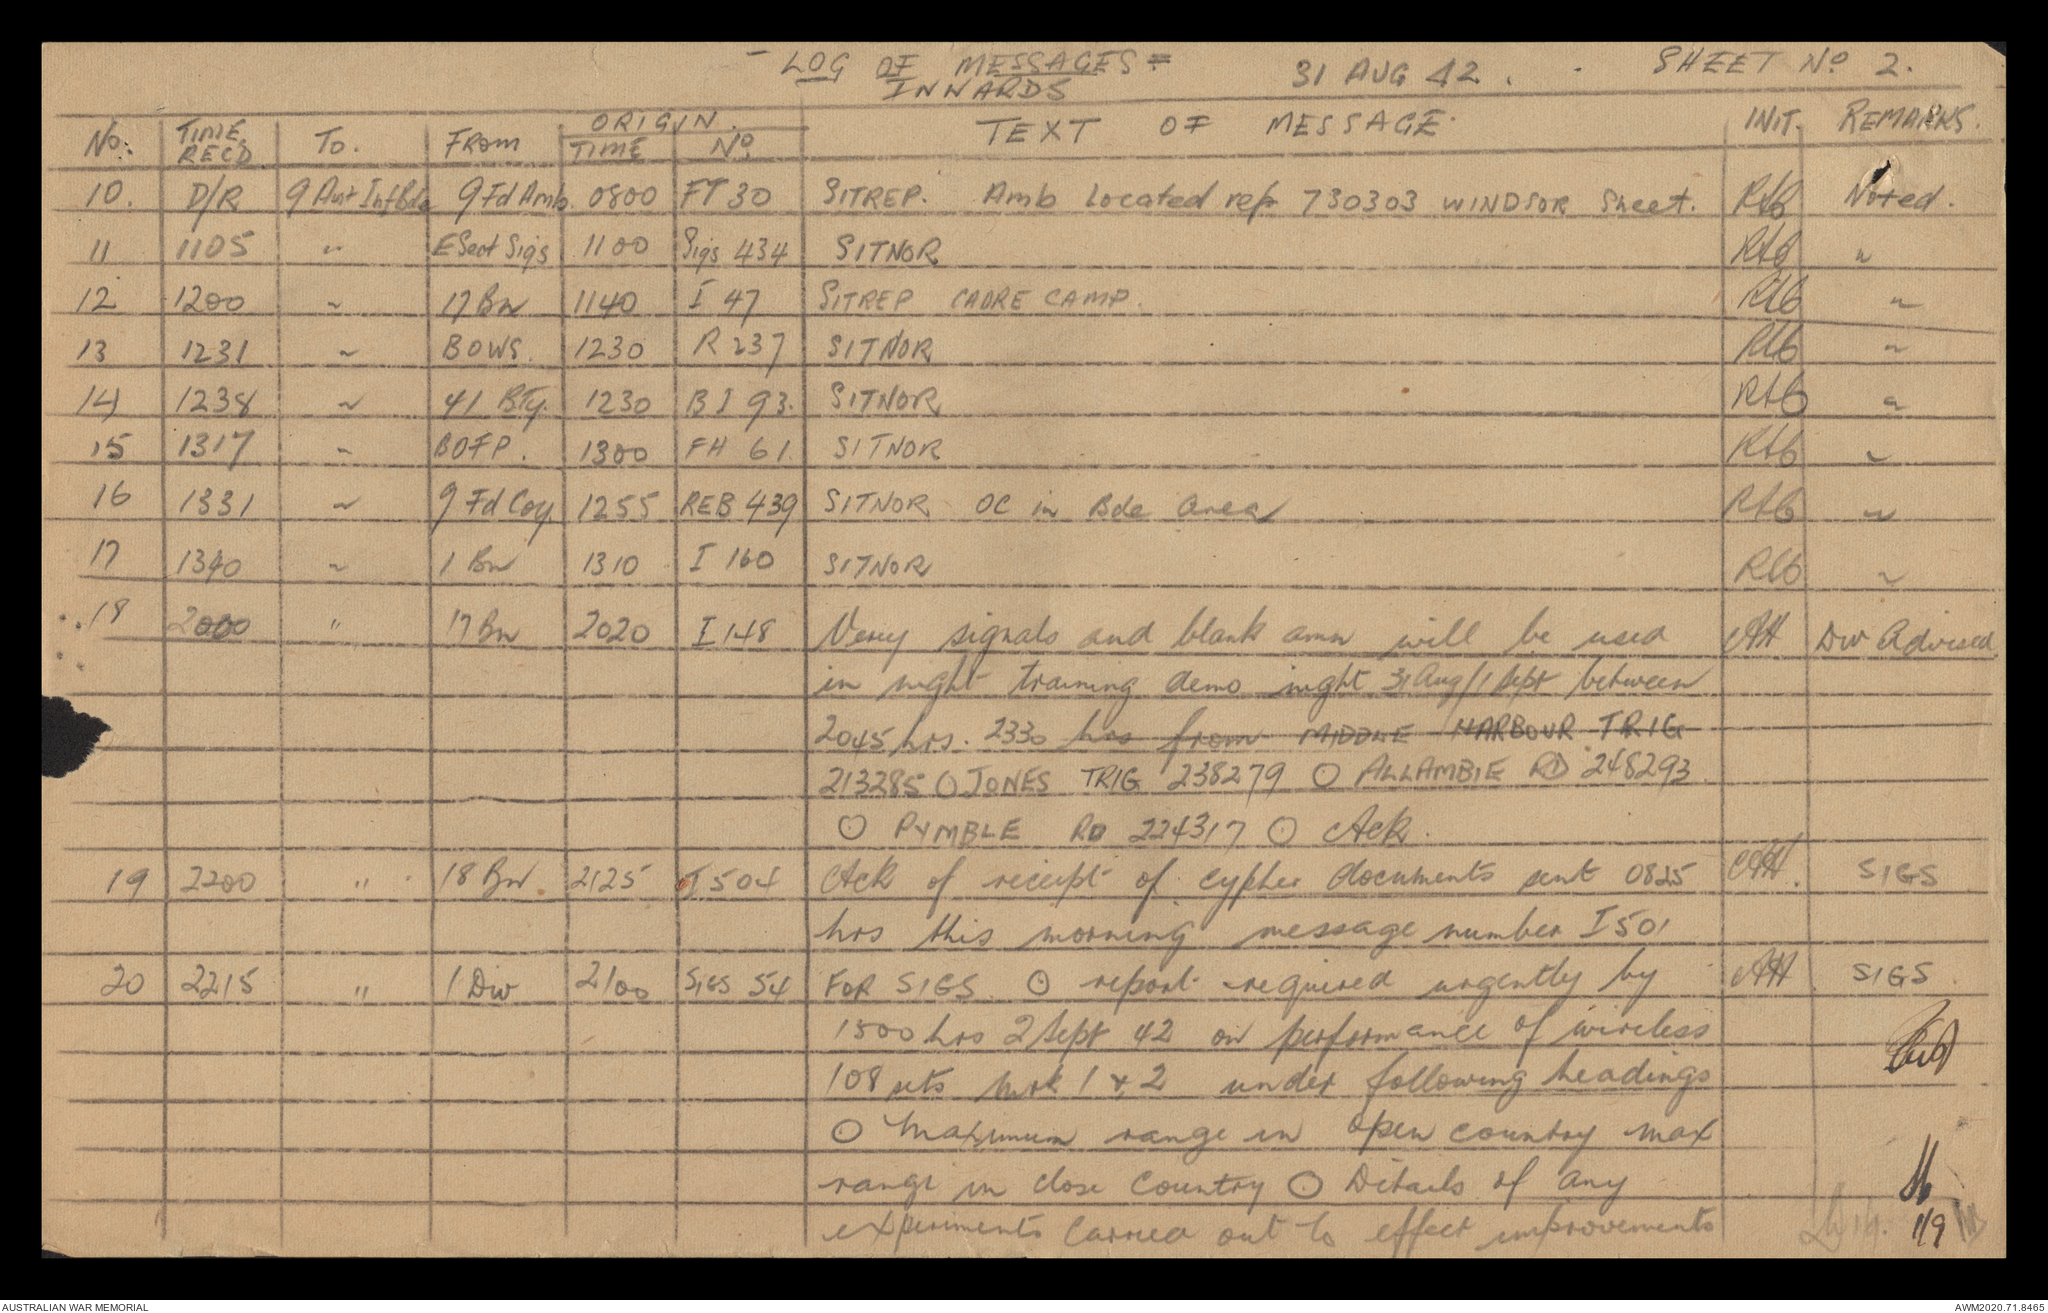 - LOG OF MESSAGES = 31 AUG 42. SHEET No 2.
INWARDS
No. TIME RECD. To. FROM ORIGIN TIME No. TEXT OF MESSAGE. INIT. REMARKS.
10. D/R 9 Aust Inf Bde 9 Fd Amb. 0800 FT 30 SITREP. Amb Located ref 730303 WINDSOR Sheet. Noted.
11 1105 " E Sect Sigs 1100 Sigs 434 SITNOR "
12 1200 " 17 Bn 1140 I 47 SITREP CADRE CAMP. "
13 1231 " BOWS. 1230 R 237 SITNOR "
14 1238 " 41 Bty. 1230 BI 93. SITNOR "
15 1317 " BOFP. 1300 FH 61. SITNOR "
16 1331 " 9 Fd Coy. 1255 REB 439 SITNOR OC in Bde area "
17 1340 " 1 Bn 1310 I 160 SITNOR "
18 2000 " 17 Bn 2020 I 148 Verey signals and blank amn will be used AH Div Advised
in night training demo night 31 Aug/1 Sept between
2045 hrs. 2330 hrs from MIDDLE HARBOUR TRIG
213285 O JONES TRIG 238279 O ALLAMBIE RD 248293
O PYMBLE RD 224317 O Ack.
19 2200 " 18 Bn 2125 I 504 Ack of receipt of cypher documents sent 0825 AH. SIGS
hrs this morning message number I 501
20 2215 " 1 Div 2100 SIGS 54 FOR SIGS O report required urgently by AH SIGS
1500 hrs 2 Sept 42 on performance of wireless
108 sets mrk 1 & 2 under following headings
O Maximum range in open country max
range in close country O Details of any
experiments carried out to effect improvements
1/9
AUSTRALIAN WAR MEMORIAL AWM2020.71.8465